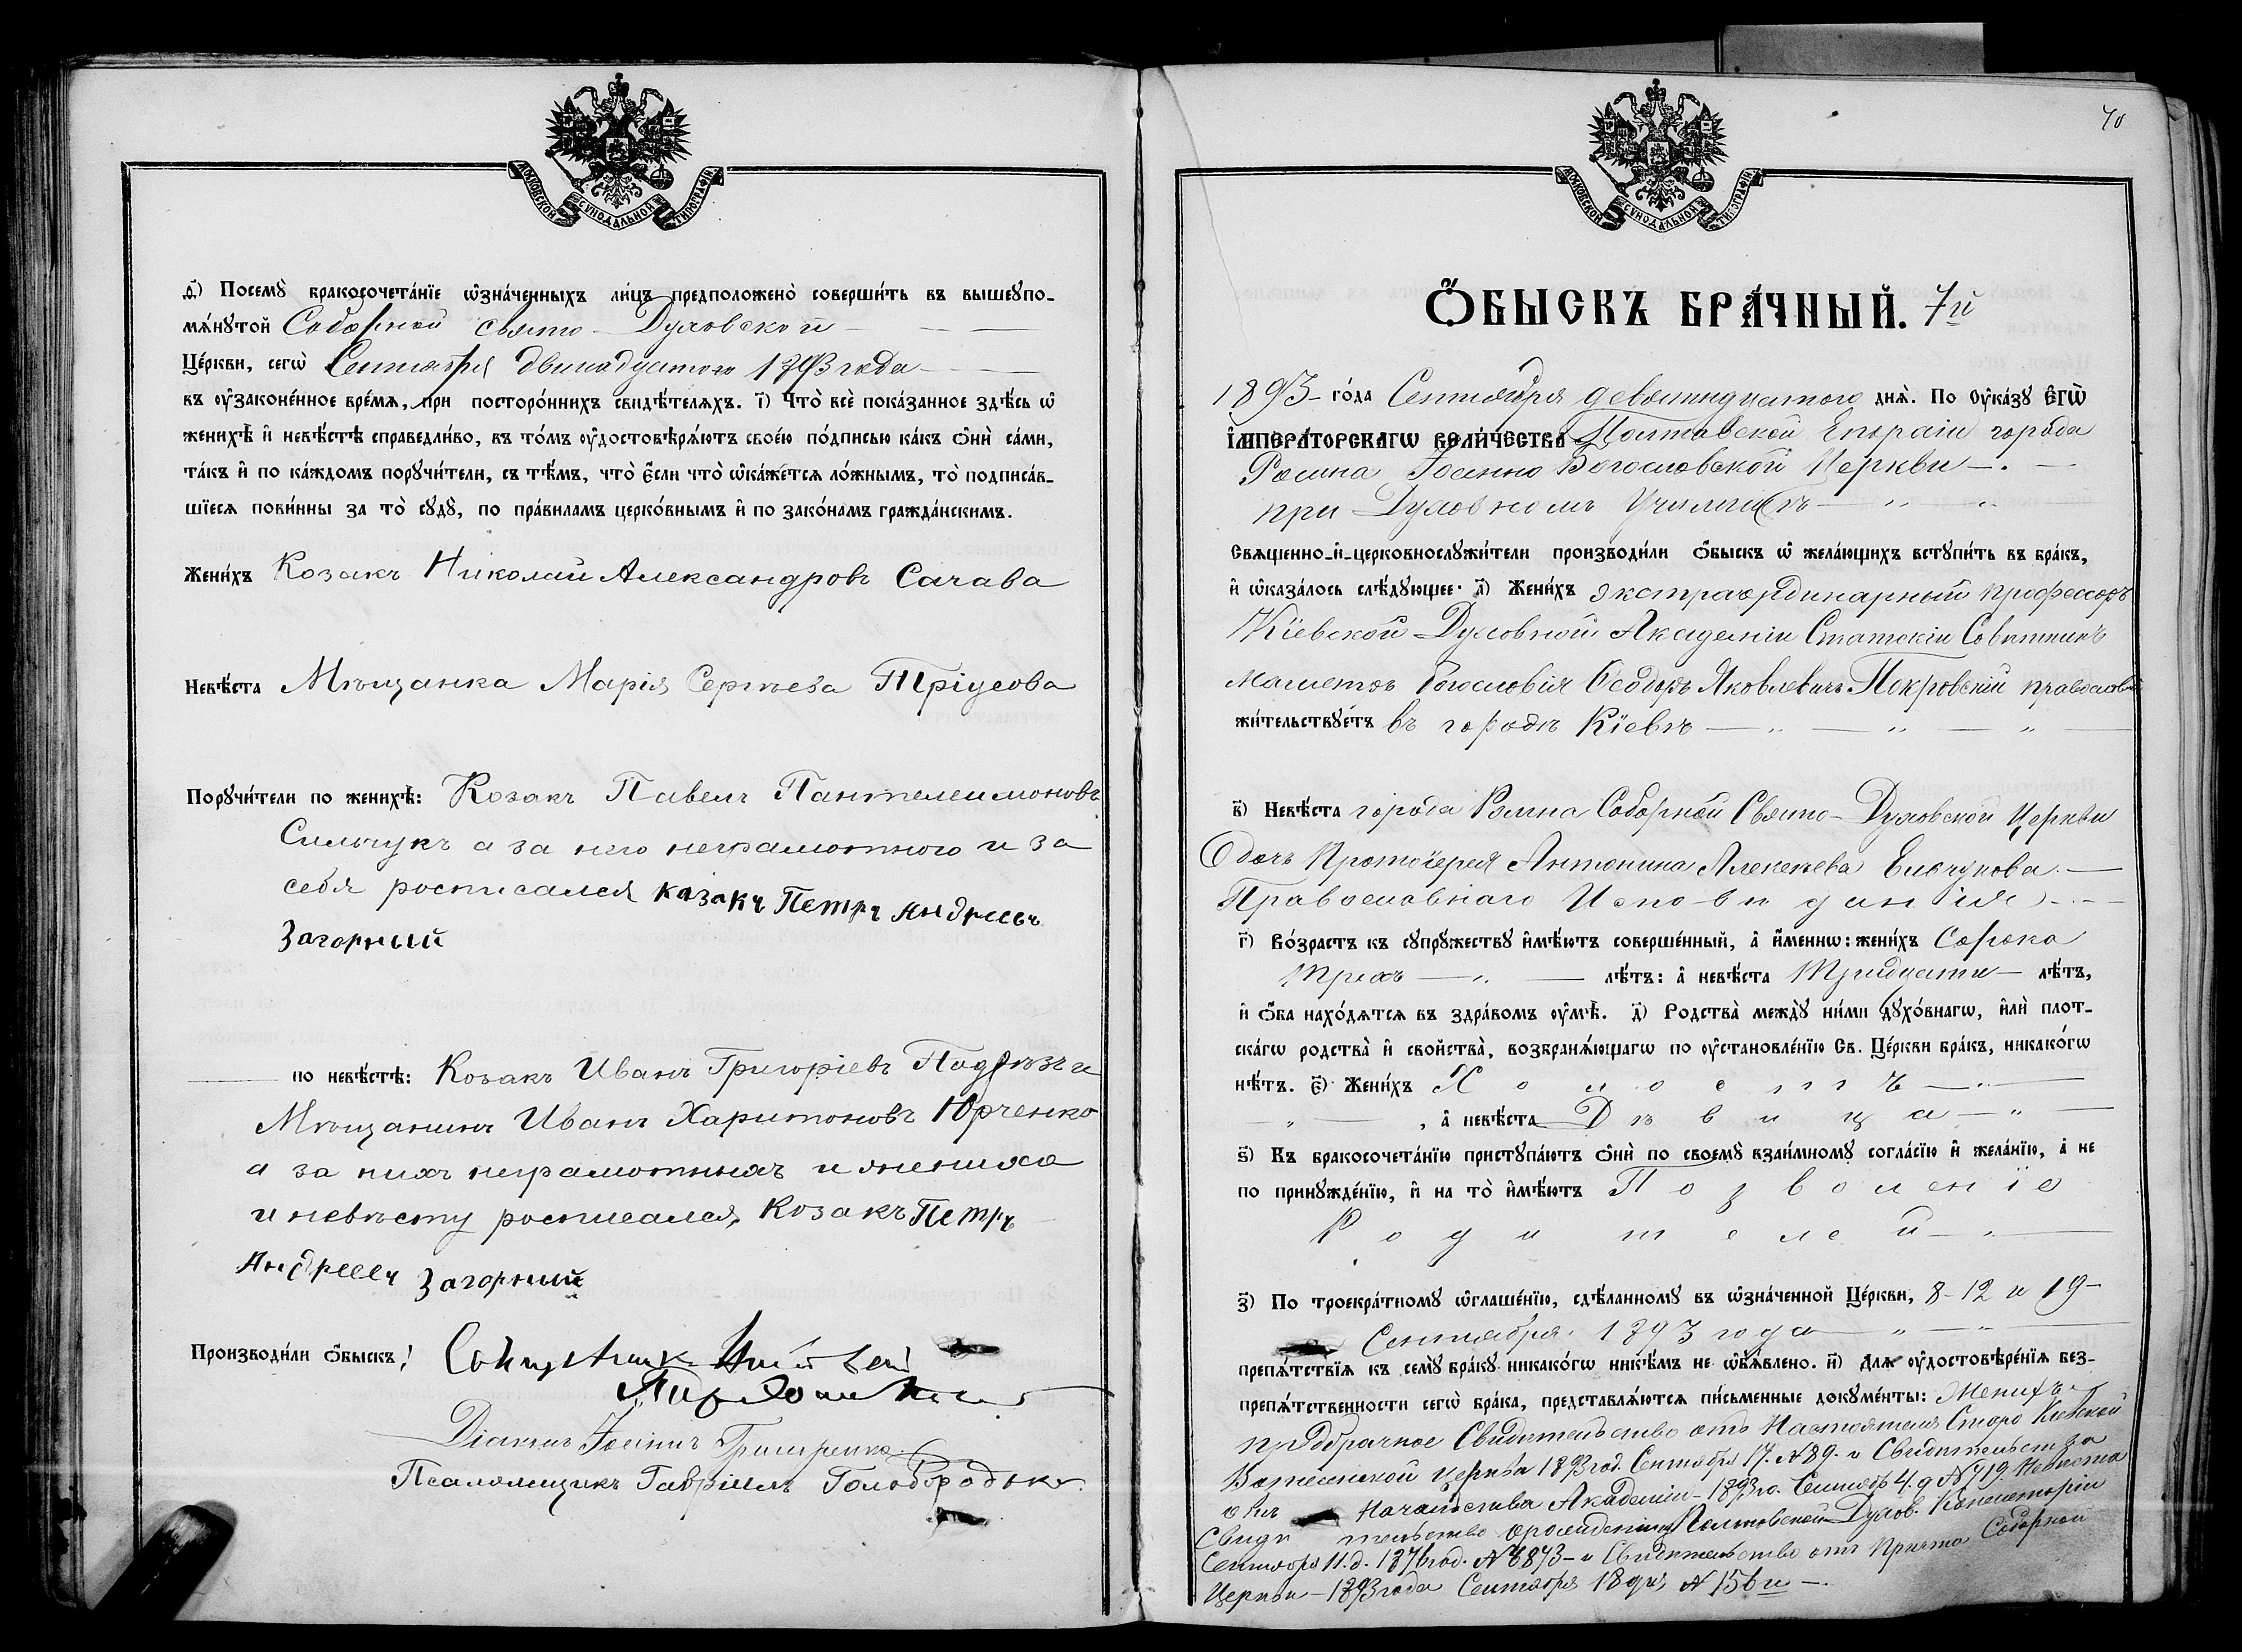 МОСКОВСКОЙ СУНОДАЛЬНОЙ ТИПОГРАФІИ
ѳ҃) Посемꙋ̀ бракосочета́нїе ѡ҆зна́ченныхъ ли́цъ предположено̀ соверши́ть въ вышеꙋпо-
мѧ́нꙋтой Соборной Свято-Духовской
Це́ркви, сегѡ̀ Сентября двинадцатого 1893 года
въ ᲂу҆законе́нное вре́мѧ, при посторо́ннихъ свидѣ́телѧхъ. і҃) Что̀ всѐ пока́занное здѣ́сь ѡ҆
женихѣ̀ и҆ невѣ́стѣ справедли́во, въ то́мъ ᲂу҆достовѣрѧ́ютъ свое́ю по́дписью ка́къ ѻ҆нѝ са́ми,
та́къ и҆ по ка́ждомъ порꙋчи́тели, съ тѣ́мъ, что̀ є҆́сли что̀ ѡ҆ка́жетсѧ ло́жнымъ, то̀ подписа́в-
шїесѧ пови́нны за то̀ сꙋдꙋ̀, по пра́виламъ церко́внымъ и҆ по зако́намъ гражда́нскимъ.
Жени́хъ Козакъ Николай Александровъ Сачава
Невѣ́ста Мѣщанка Марія Сергѣева Тріусова
Порꙋчи́тели по женихѣ̀: Козакъ Павелъ Пантелеимоновъ
а за него неграмотного и за
себя росписался казакъ Петръ Андреевъ
Загорный
по невѣ́стѣ: Козакъ Иванъ Григоріевъ
Мѣщанинъ Иванъ Харитоновъ Юрченко
а за нихъ неграмотныхъ и жениха
и невѣсту росписался, Козакъ Петръ
Андреевъ Загорный
Производи́ли ѻ҆́быскъ:
Діаконъ Іосифъ
Псаломщикъ Гавріилъ Голобородько
70
МОСКОВСКОЙ СУНОДАЛЬНОЙ ТИПОГРАФІИ
Ѻ҆БЫСКЪ БРА́ЧНЫЙ. 7й
1893 го́да Сентября девятнадцатого днѧ̀. По Оу҆ка́зꙋ Є҆гѡ̀
И҆МПЕРА́ТОРСКАГѠ ВЕЛИ́ЧЕСТВА Полтавской Епархіи города
Ромна Іоанно Богословской Церкви
при Духовномъ Училищѣ
Свѧщенно-и҆-церковнослꙋжи́тели производи́ли ѻ҆́быскъ ѡ҆ жела́ющихъ встꙋпи́ть въ бра́къ,
и҆ ѡ҆каза́лось слѣ́дꙋющее: а҃) Жени́хъ экстраординарный профессоръ
Кіевской Духовной Академіи Статскій Совѣтникъ
Магистръ Богословія Ѳеодоръ Яковлевичъ Покровскій православн
жи́тельствꙋетъ въ городѣ Кіевѣ
в҃) Невѣ́ста города Ромна Соборной Свято-Духовской Церкви
дочь Протоіерея Антонина Алексѣева
Православнаго Исповѣданія
г҃) Во́зрастъ къ сꙋпрꙋ́жествꙋ и҆мѣ́ютъ соверше́нный, а҆ и҆́меннѡ: жени́хъ Сорока
трехъ лѣ́тъ: а҆ невѣ́ста Тридцати лѣ́тъ,
и҆ ѻ҆́ба нахо́дѧтсѧ въ здра́вомъ ᲂу҆мѣ̀. д҃) Родства̀ междꙋ̀ ни́ми дꙋхо́внагѡ, и҆лѝ плот-
скагѡ родства̀ и҆ сво́йства, возбранѧ́ющагѡ по ᲂу҆становле́нїю Св. Це́ркви бра́къ, никако́гѡ
нѣ́тъ. є҃) Жени́хъ Холостъ
, а҆ невѣ́ста Дѣвица
ѕ҃) Къ бракосочета́нїю пристꙋпа́ютъ ѻ҆нѝ по своемꙋ̀ взаи́мномꙋ согла́сїю и҆ жела́нїю, а҆ не
по принꙋжде́нїю, и҆ на то̀ и҆мѣ́ютъ Позволеніе
Родителей
з҃) По троекра́тномꙋ ѡ҆глаше́нїю, сдѣ́ланномꙋ въ ѡ҆зна́ченной Це́ркви, 8-12 и 19
Сентября 1893 года
препѧ́тствїѧ къ семꙋ̀ бра́кꙋ никако́гѡ никѣ́мъ не ѡ҆б̾ѧ́влено. и҃) Длѧ ᲂу҆достовѣре́нїѧ без-
препѧ́тственности сегѡ̀ бра́ка, представлѧ́ютсѧ пи́сьменные докꙋме́нты: Женихъ
предбрачное Свидѣтельство отъ Настоятеля Старо Кіевской
Церкви 1893 год. Сентября 17. №89. и Свидѣтельства
отъ Начальства Академіи 1893 го. Сентября 4. д №719 Невѣста
Свидѣтельство о рожденіи Полтавской Духов. Консисторіи
Сентября 11. д. 1876 год. № и Свидѣтельство отъ Причта Соборной
Церкви 1893 года Сентября 18 дня №